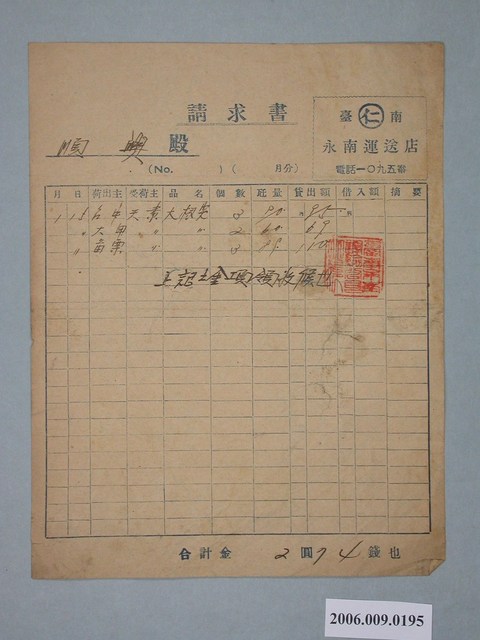 請求書
臺 仁 南
永南運送店
電話一〇九五番
順興 殿
(No. ) ( 月分)
月 日 荷出主 受荷主 品名 個數 斤量 貸出額 借入額 摘要
1 15 台中 天素 3 90 95
〃 大甲 〃 〃 2 60 69
〃 苗栗 〃 〃 3
上記之金項領收候也
合計金 2圓74錢也
2006.009.0195